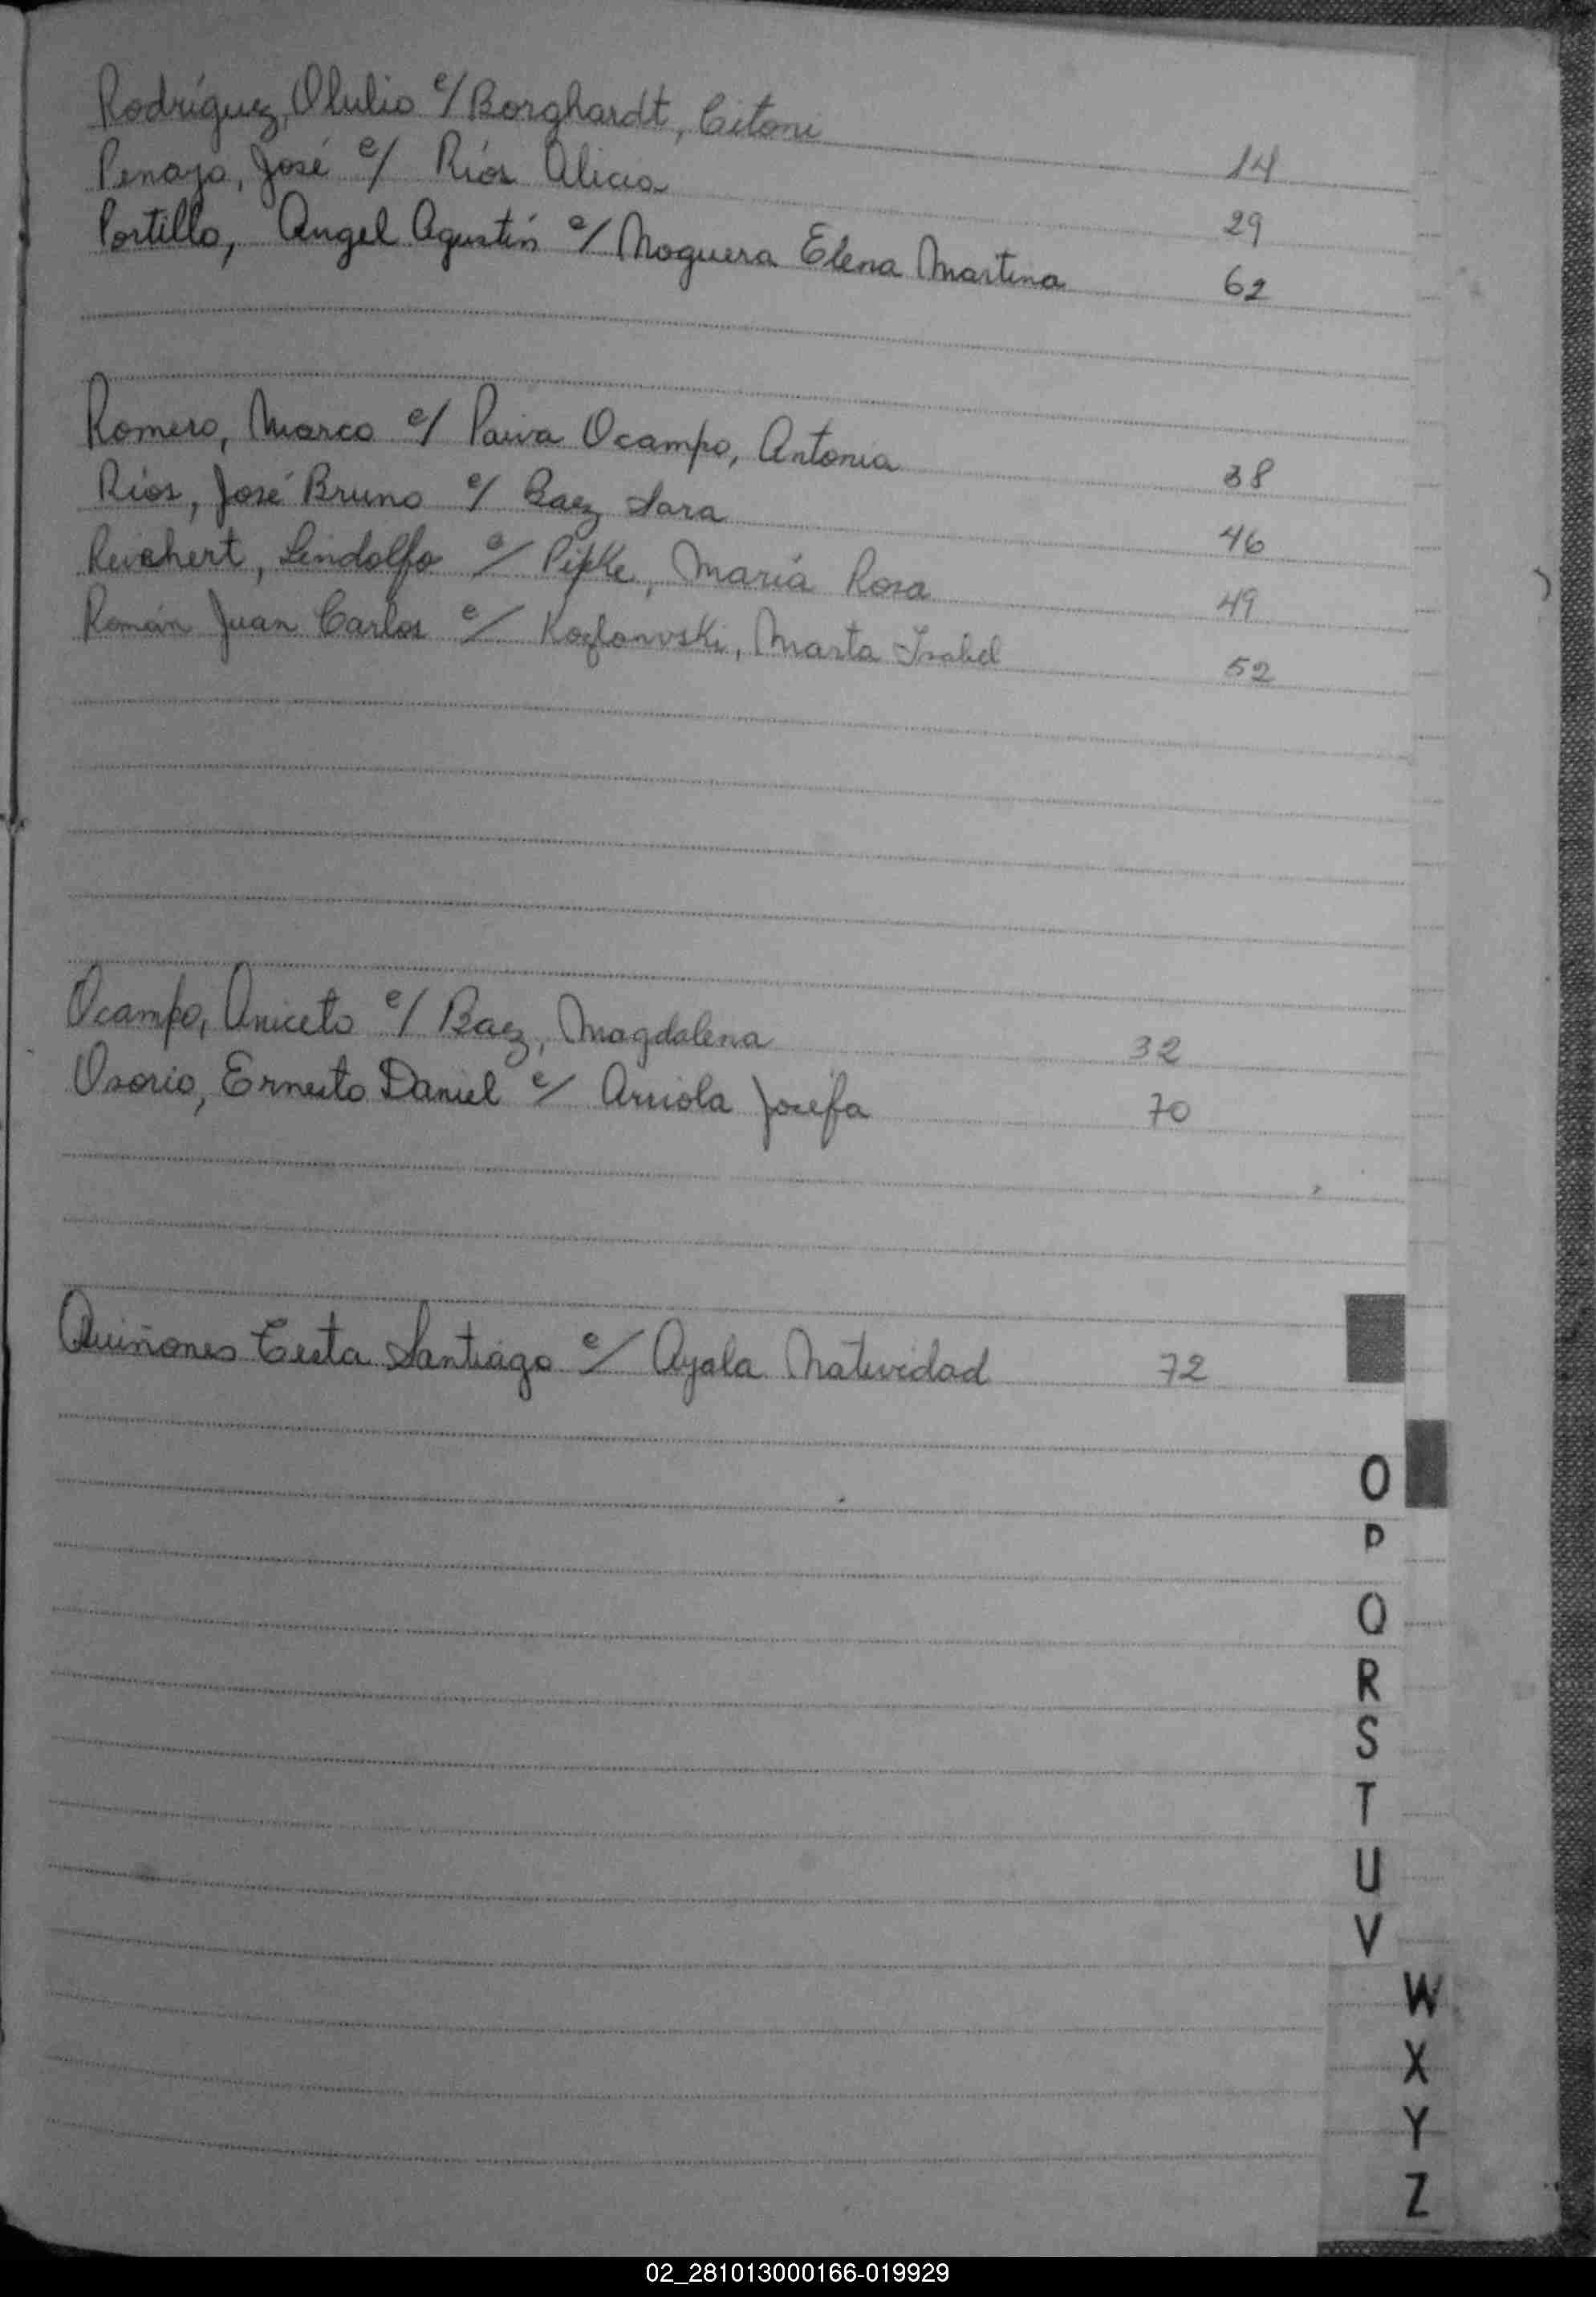 Rodríguez, Olulio c/ Borghardt, Citoni 14
Penayo, José c/ Ríos Alicia 29
Portillo, Angel Agustín c/ Noguera Elena Martina 62
Romero, Marco c/ Paiva Ocampo, Antonia 38
Ríos, José Bruno c/ Baez Sara 46
Reichert, Lindolfo c/ Pipke, María Rosa 49
Román Juan Carlos c/ Kozlowski, Marta Isabel 52
Ocampo, Aniceto c/ Baez, Magdalena 32
Osorio, Ernesto Daniel c/ Arriola Josefa 70
Quiñones Testa Santiago c/ Ayala Natividad 72
O
P
Q
R
S
T
U
V
W
X
Y
Z
02_281013000166-019929